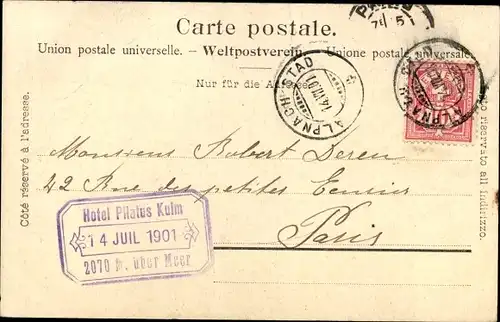 Carte postale.
Union postale universelle. - Weltpostverein. - Unione postale universale
Nur für die Adresse.
Côté réservé à l'adresse.
Lato riservato all indirizzo.
ALPNACH-STAD
14.VII.01
Monsieur Robert Deren
42 Rue des petites Ecuries
Paris
Hotel Pilatus Kulm
14 JUIL 1901
2070 m. über Meer